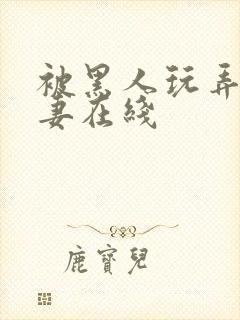 被黑人玩弄
妻在线
鹿寶兒